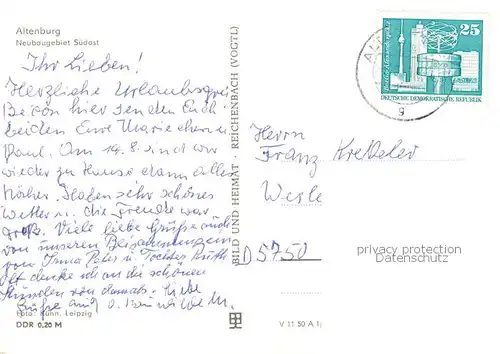 Altenburg
Neubaugebiet Südost
Ihr Lieben!
Herzliche Urlaubsgrüße
von hier senden Euch
beiden Eure Mariechen u.
Paul. Am 14.8. sind wir
wieder zu Hause dann
Haben sehr schönes
Wetter die Freude war
groß. Viele liebe Grüße auch
von unseren
von Irma Peter u. Tochter
Oft denke ich an die schönen
Stunden von damals. Liebe
Foto: Kühn, Leipzig
DDR 0,20 M
BILD UND HEIMAT · REICHENBACH (VOGTL)
V 11 50 A 1
25
DEUTSCHE DEMOKRATISCHE REPUBLIK
Herrn
Franz
D 5750
privacy protection
Datenschutz